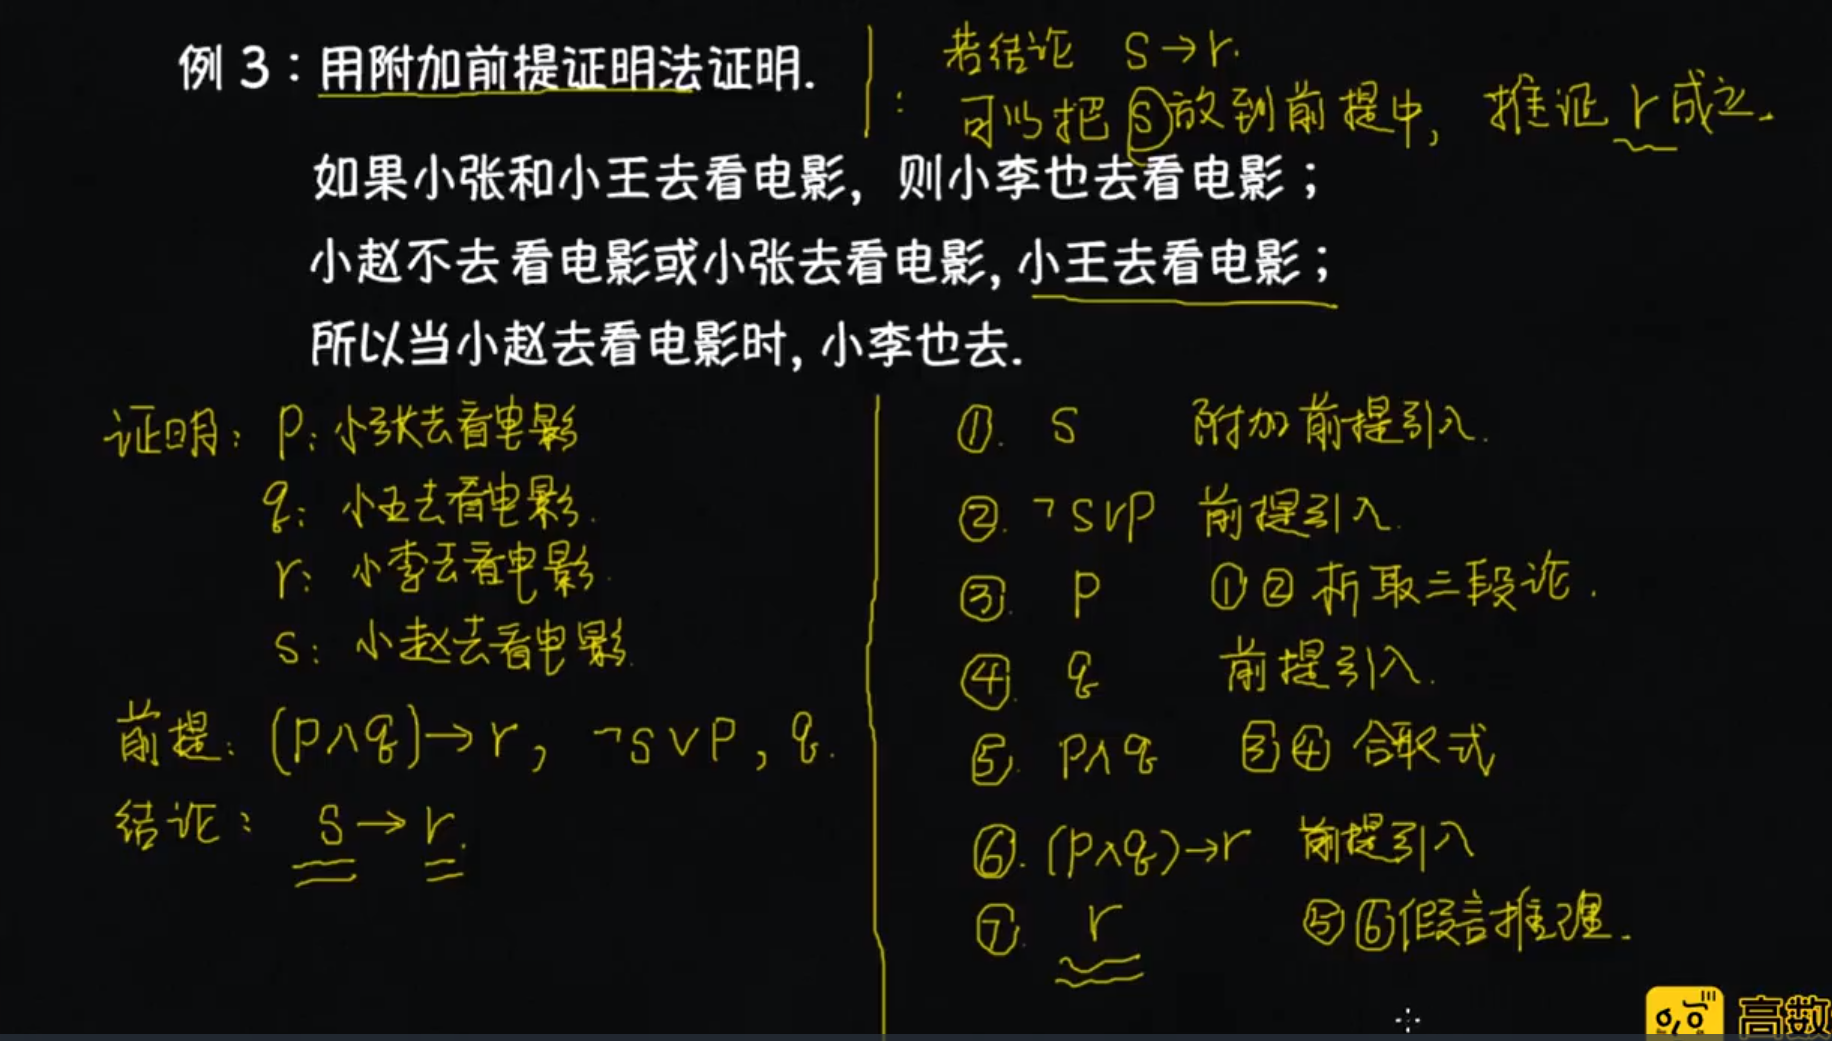 例 3：用附加前提证明法证明.
若结论 S→r.
可以把 S 放到前提中, 推证 r 成立.
如果小张和小王去看电影, 则小李也去看电影；
小赵不去看电影或小张去看电影, 小王去看电影；
所以当小赵去看电影时, 小李也去.
证明: p: 小张去看电影
q: 小王去看电影.
r: 小李去看电影.
s: 小赵去看电影.
前提: (p∧q)→r, ¬s∨p, q.
结论: s→r.
①. s 附加前提引入.
②. ¬s∨p 前提引入.
③. p ①② 析取三段论.
④. q 前提引入.
⑤. p∧q ③④ 合取式
⑥. (p∧q)→r 前提引入
⑦. r ⑤⑥假言推理.
高数